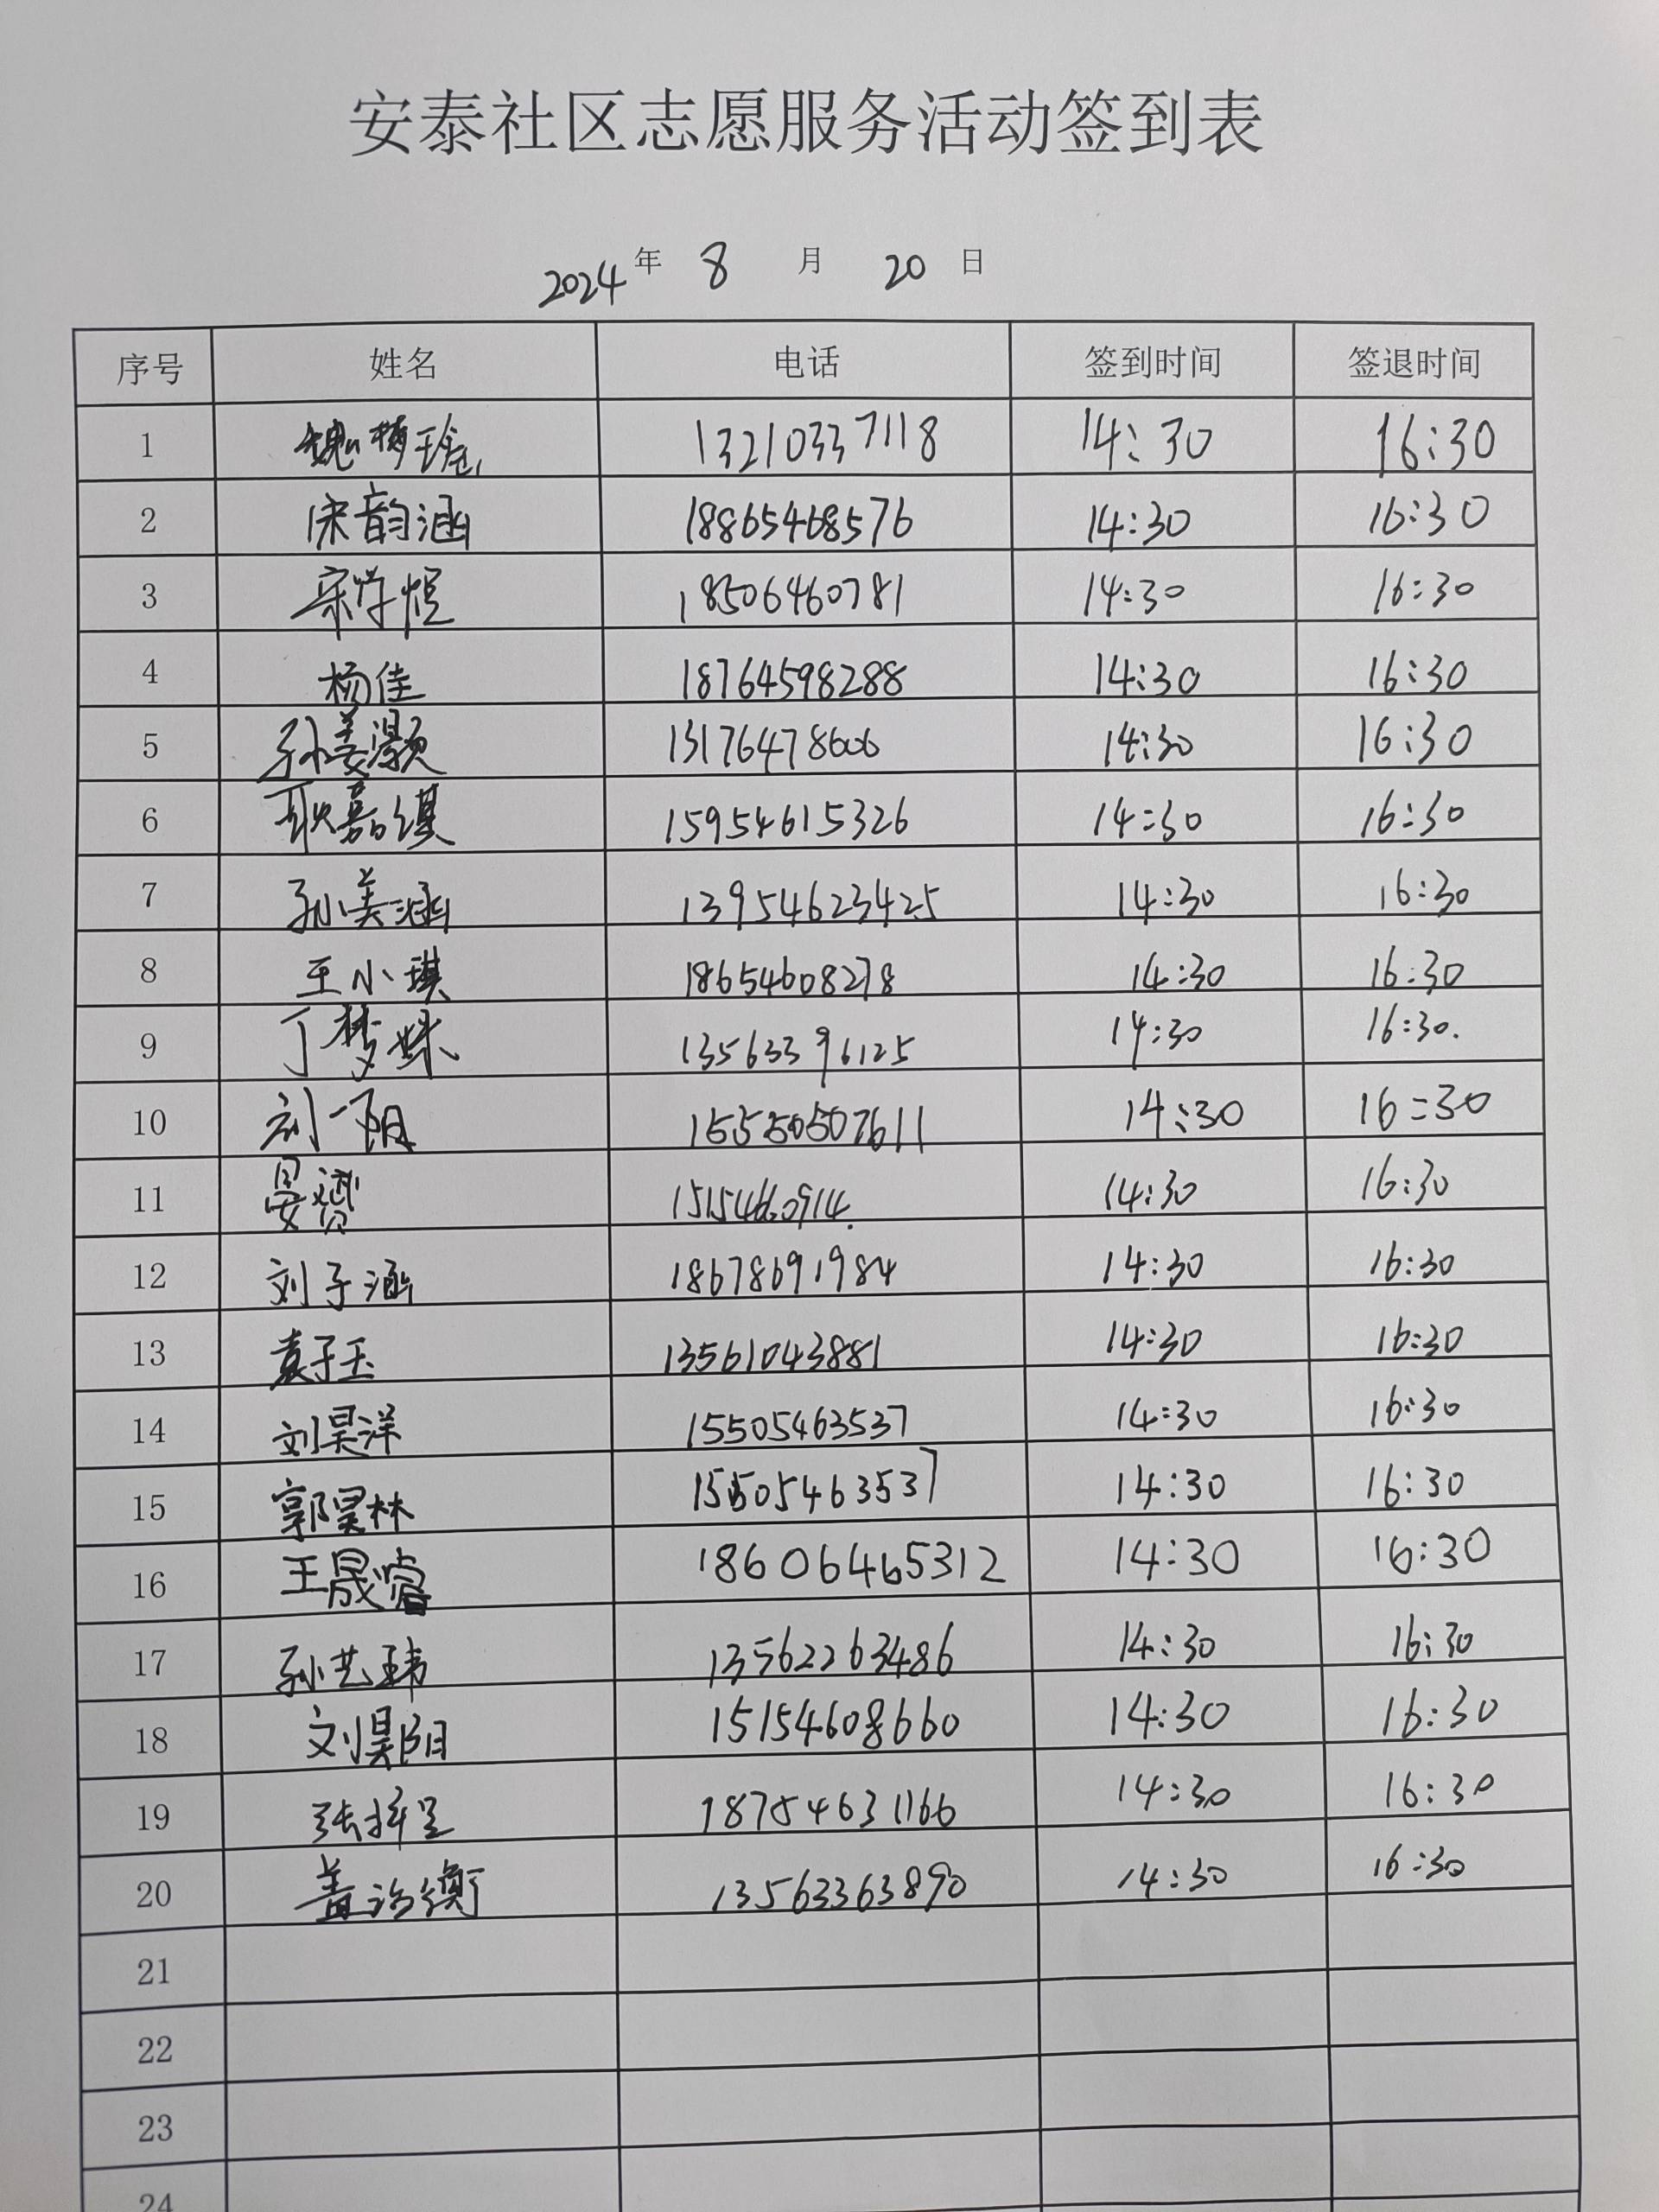 安泰社区志愿服务活动签到表
2024年 8 月 20 日
序号 姓名 电话 签到时间 签退时间
1 魏梅瑶 13210337118 14:30 16:30
2 宋韵涵 18865468576 14:30 16:30
3 宋学恒 18506460781 14:30 16:30
4 杨佳 18764598288 14:30 16:30
5 孙姜灏 13176478606 14:30 16:30
6 耿嘉祺 15954615326 14:30 16:30
7 孙美涵 13954623425 14:30 16:30
8 王小琪 18654608278 14:30 16:30
9 丁梦姝 13563396125 14:30 16:30.
10 刘一阳 15550507611 14:30 16:30
11 晏赟 14:30 16:30
12 刘子涵 18678691984 14:30 16:30
13 袁子玉 13561043881 14:30 16:30
14 刘昊洋 15505463537 14:30 16:30
15 郭昊林 15505463537 14:30 16:30
16 王晟睿 18606465312 14:30 16:30
17 孙艺玮 13562263486 14:30 16:30
18 刘昊阳 15154608660 14:30 16:30
19 张梓呈 18754631166 14:30 16:30
20 盖治衡 13563363890 14:30 16:30
21
22
23
24